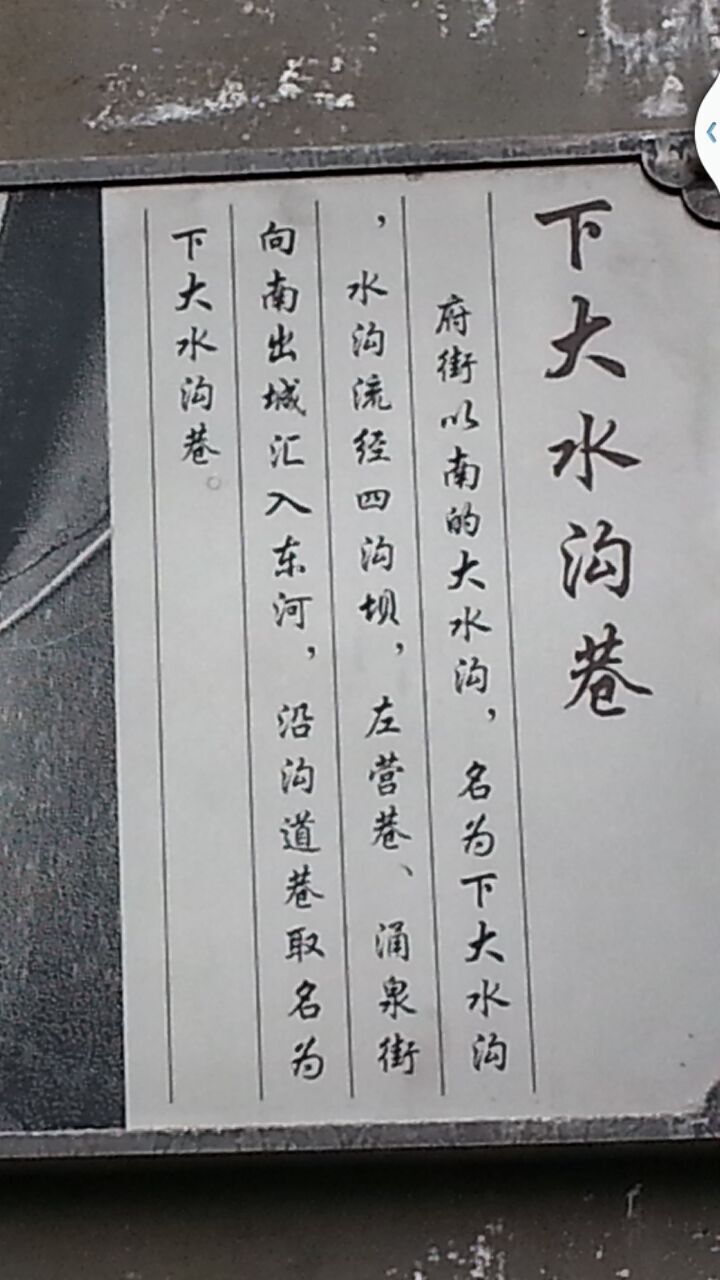 下大水沟巷
府街以南的大水沟，名为下大水沟
，水沟流经四沟坝，左营巷、涌泉街
向南出城汇入东河，沿沟道巷取名为
下大水沟巷。